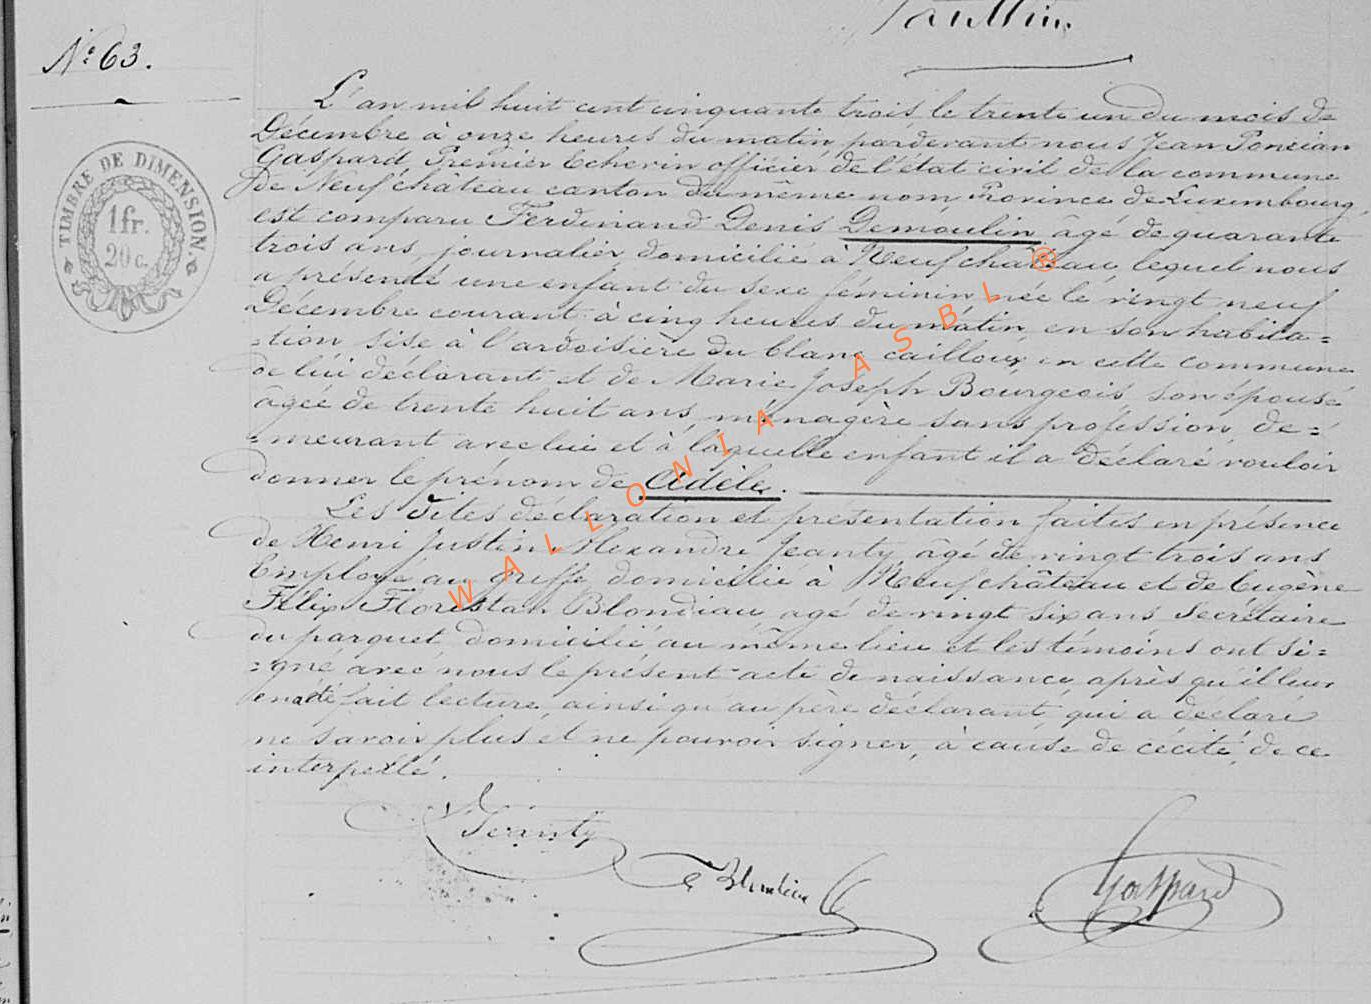 Nº 63.
TIMBRE DE DIMENSION.
1 fr.
20 c.
L'an mil huit cent cinquante trois, le trente un du mois de
Décembre à onze heures du matin, pardevant nous Jean Poncian
Gaspard Premier Echevin officier de l'état civil de la commune
de Neufchâteau canton du même nom Province de Luxembourg
est comparu Ferdinand Denis Demoulin, âgé de quarante
trois ans, journalier domicilié à Neufchâteau, lequel nous
a présenté une enfant du sexe féminin née le vingt neuf
Décembre courant à cinq heures du matin, en son habita=
=tion sise à l'ardoisière du blanc cailloux, en cette commune
de lui déclarant et de Marie Joseph Bourgeois, son épouse
âgée de trente huit ans, ménagère sans profession, de=
=meurant avec lui et à laquelle enfant il a déclaré vouloir
donner le prénom de Adèle.
Les dites déclaration et présentation faites en présence
de Henri Justin Alexandre Jeanty, âgé de vingt trois ans
Employé au greffe, domicilié à Neufchâteau et de Eugène
Félix Florestan Blondiau, agé de vingt six ans Secrétaire
du parquet, domicilié au même lieu et les témoins ont si=
=gné avec nous le présent acte de naissance, après qu'il leur
en a été fait lecture, ainsi qu'au père déclarant, qui a déclaré
ne savoir plus et ne pouvoir signer, à cause de cécité, de ce
interpellé.
Jeanty
Blondiau
Gaspard
WALLONIA ASBL ®